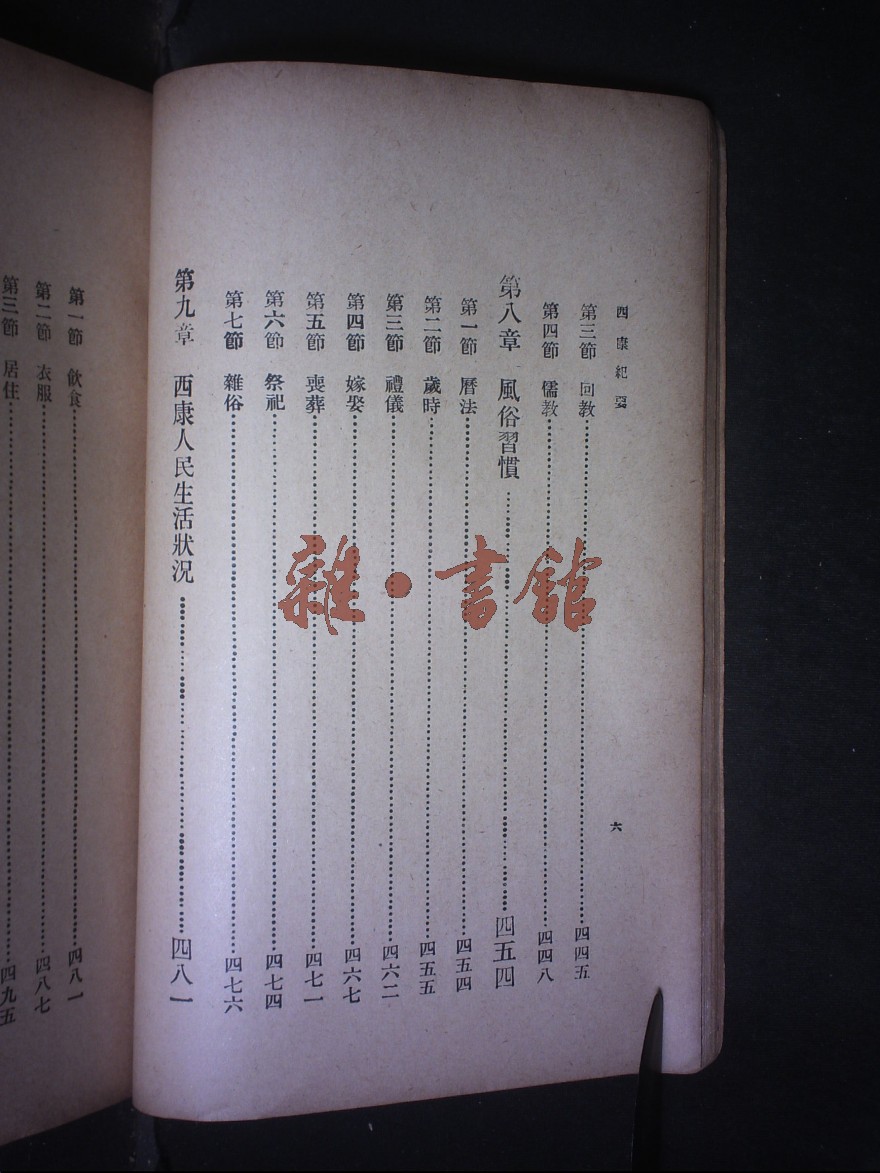 西康紀要
六
第三節 回教 四四五
第四節 儒教 四四八
第八章 風俗習慣 四五四
第一節 曆法 四五四
第二節 歲時 四五五
第三節 禮儀 四六二
第四節 嫁娶 四六七
第五節 喪葬 四七一
第六節 祭祀 四七四
第七節 雜俗 四七六
第九章 西康人民生活狀況 四八一
第一節 飲食 四八一
第二節 衣服 四八七
第三節 居住 四九五
雜·書館